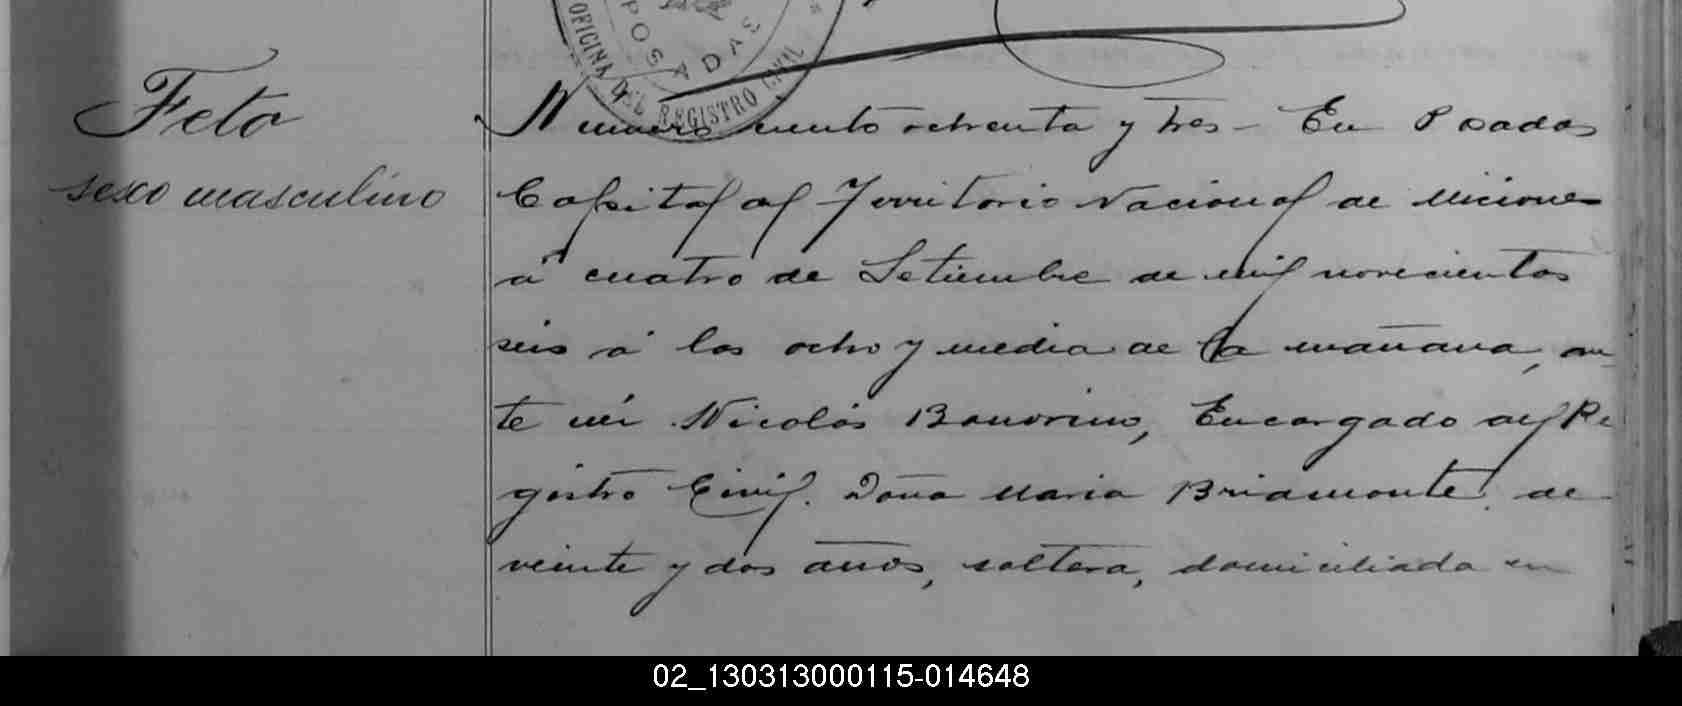 POSADAS
OFICINA DEL REGISTRO CIVIL
Feto
sexo masculino
Numero ciento ochenta y tres - En Posadas
Capital del Territorio Nacional de Miciones
á cuatro de Setiembre de mil novecientos
seis á las ocho y media de la mañana, an
te mi Nicolás Bonorino, Encargado del Re
gistro Civil. Doña Maria Briamonte de
veinte y dos años, soltera, domiciliada en
02_130313000115-014648